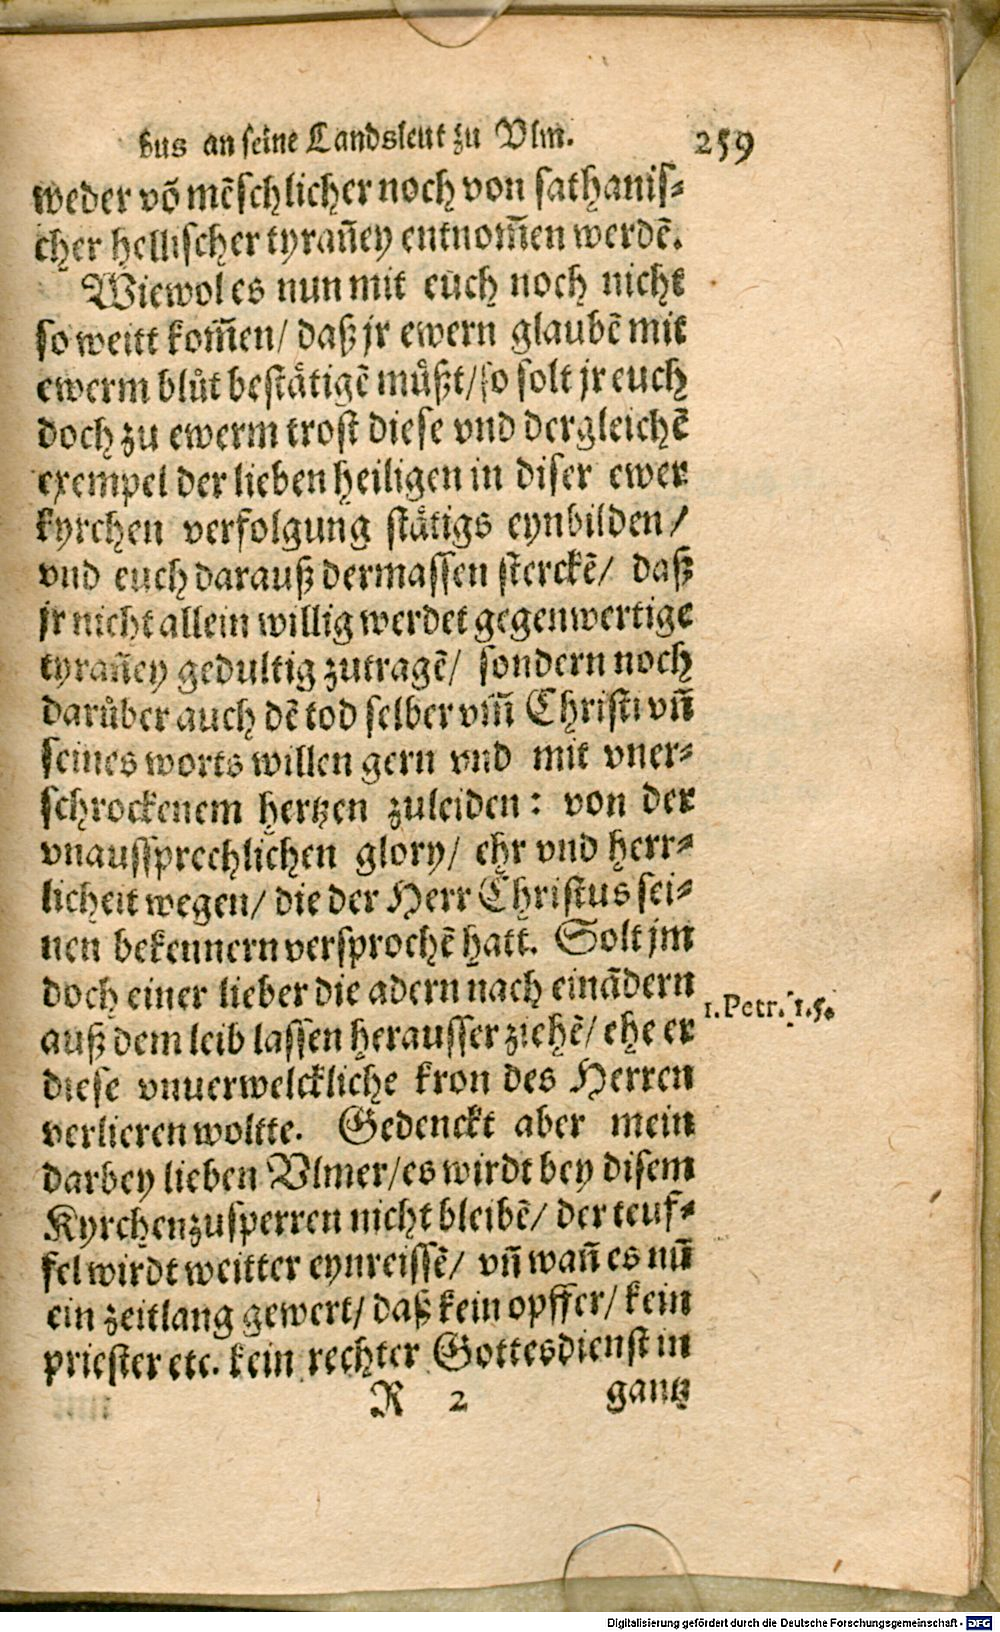 bus an seine Landsleut zu Vlm. 259
weder võ mẽschlicher noch von sathanis⸗
cher hellischer tyrañey entnom̃en werdẽ.
Wiewol es nun mit euch noch nicht
so weitt kom̃en/ daß jr ewern glaubẽ mit
ewerm blůt bestätigẽ můßt/so solt jr euch
doch zu ewerm trost diese vnd dergleichẽ
exempel der lieben heiligen in diser ewer
kyrchen verfolgung stätigs eynbilden/
vnd euch darauß dermassen sterckẽ/ daß
jr nicht allein willig werdet gegenwertige
tyrañey gedultig zutragẽ/ sondern noch
darůber auch dẽ tod selber vm̃ Christi vñ
seines worts willen gern vnd mit vner⸗
schrockenem hertzen zuleiden: von der
vnaussprechlichen glory/ ehr vnd herr⸗
licheit wegen/ die der Herr Christus sei⸗
nen bekennern versprochẽ hatt. Solt jm
doch einer lieber die adern nach einãdern
auß dem leib lassen herausser ziehẽ/ ehe er
1. Petr. 1.5.
diese vnuerwelckliche kron des Herren
verlieren woltte. Gedenckt aber mein
darbey lieben Vlmer/es wirdt bey disem
Kyrchenzusperren nicht bleibẽ/ der teuf⸗
fel wirdt weitter eynreissẽ/ vñ wañ es nũ
ein zeitlang gewert/ daß kein opffer/ kein
priester etc. kein rechter Gottesdienst in
R 2 gantz
Digitalisierung gefördert durch die Deutsche Forschungsgemeinschaft - DFG